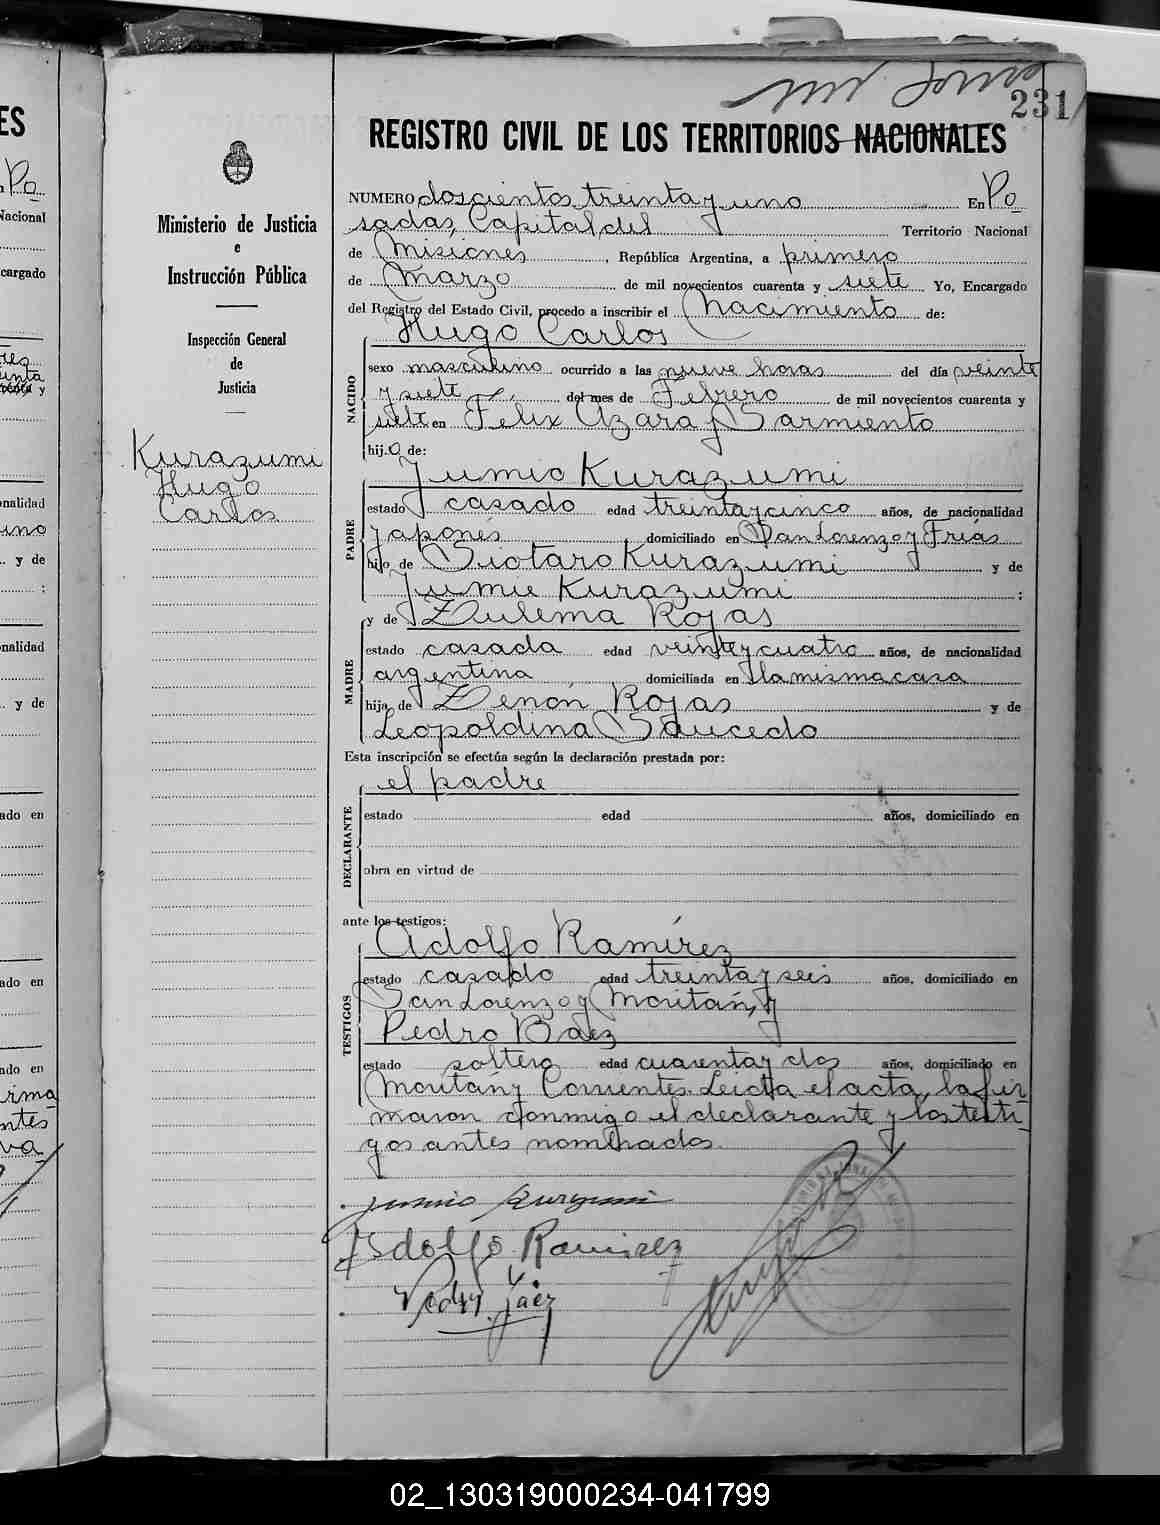 231
REGISTRO CIVIL DE LOS TERRITORIOS NACIONALES
Ministerio de Justicia
e
Instrucción Pública
Inspección General
de
Justicia
Kurazumi
Hugo
Carlos
NUMERO doscientos treinta y uno En Po
sadas, Capital del Territorio Nacional
de Misiones, República Argentina, a primero
de Marzo de mil novecientos cuarenta y siete Yo, Encargado
del Registro del Estado Civil, procedo a inscribir el Nacimiento de:
NACIDO
Hugo Carlos
sexo masculino ocurrido a las nueve horas del día veinte
y siete del mes de Febrero de mil novecientos cuarenta y
siete en Félix Azara y Sarmiento
hij.o de:
PADRE
Jumio Kurazumi
estado casado edad treinta y cinco años, de nacionalidad
japonés domiciliado en San Lorenzo y Frías
hijo de Siotaro Kurazumi y de
Jumie Kurazumi :
y de Zulema Rojas
MADRE
estado casada edad veinte y cuatro años, de nacionalidad
argentina domiciliada en la misma casa
hija de Zenón Rojas y de
Leopoldina Saucedo
Esta inscripción se efectúa según la declaración prestada por:
el padre
DECLARANTE
estado edad años, domiciliado en
obra en virtud de
ante los testigos:
TESTIGOS
Adolfo Ramírez
estado casado edad treinta y seis años, domiciliado en
San Lorenzo y Moritán, y
Pedro Baez
estado soltero edad cuarenta y dos años, domiciliado en
Moritán y Corrientes. Leída el acta, la fir
maron conmigo el declarante y los testi
gos antes nombrados.
Adolfo Ramirez
02_130319000234-041799